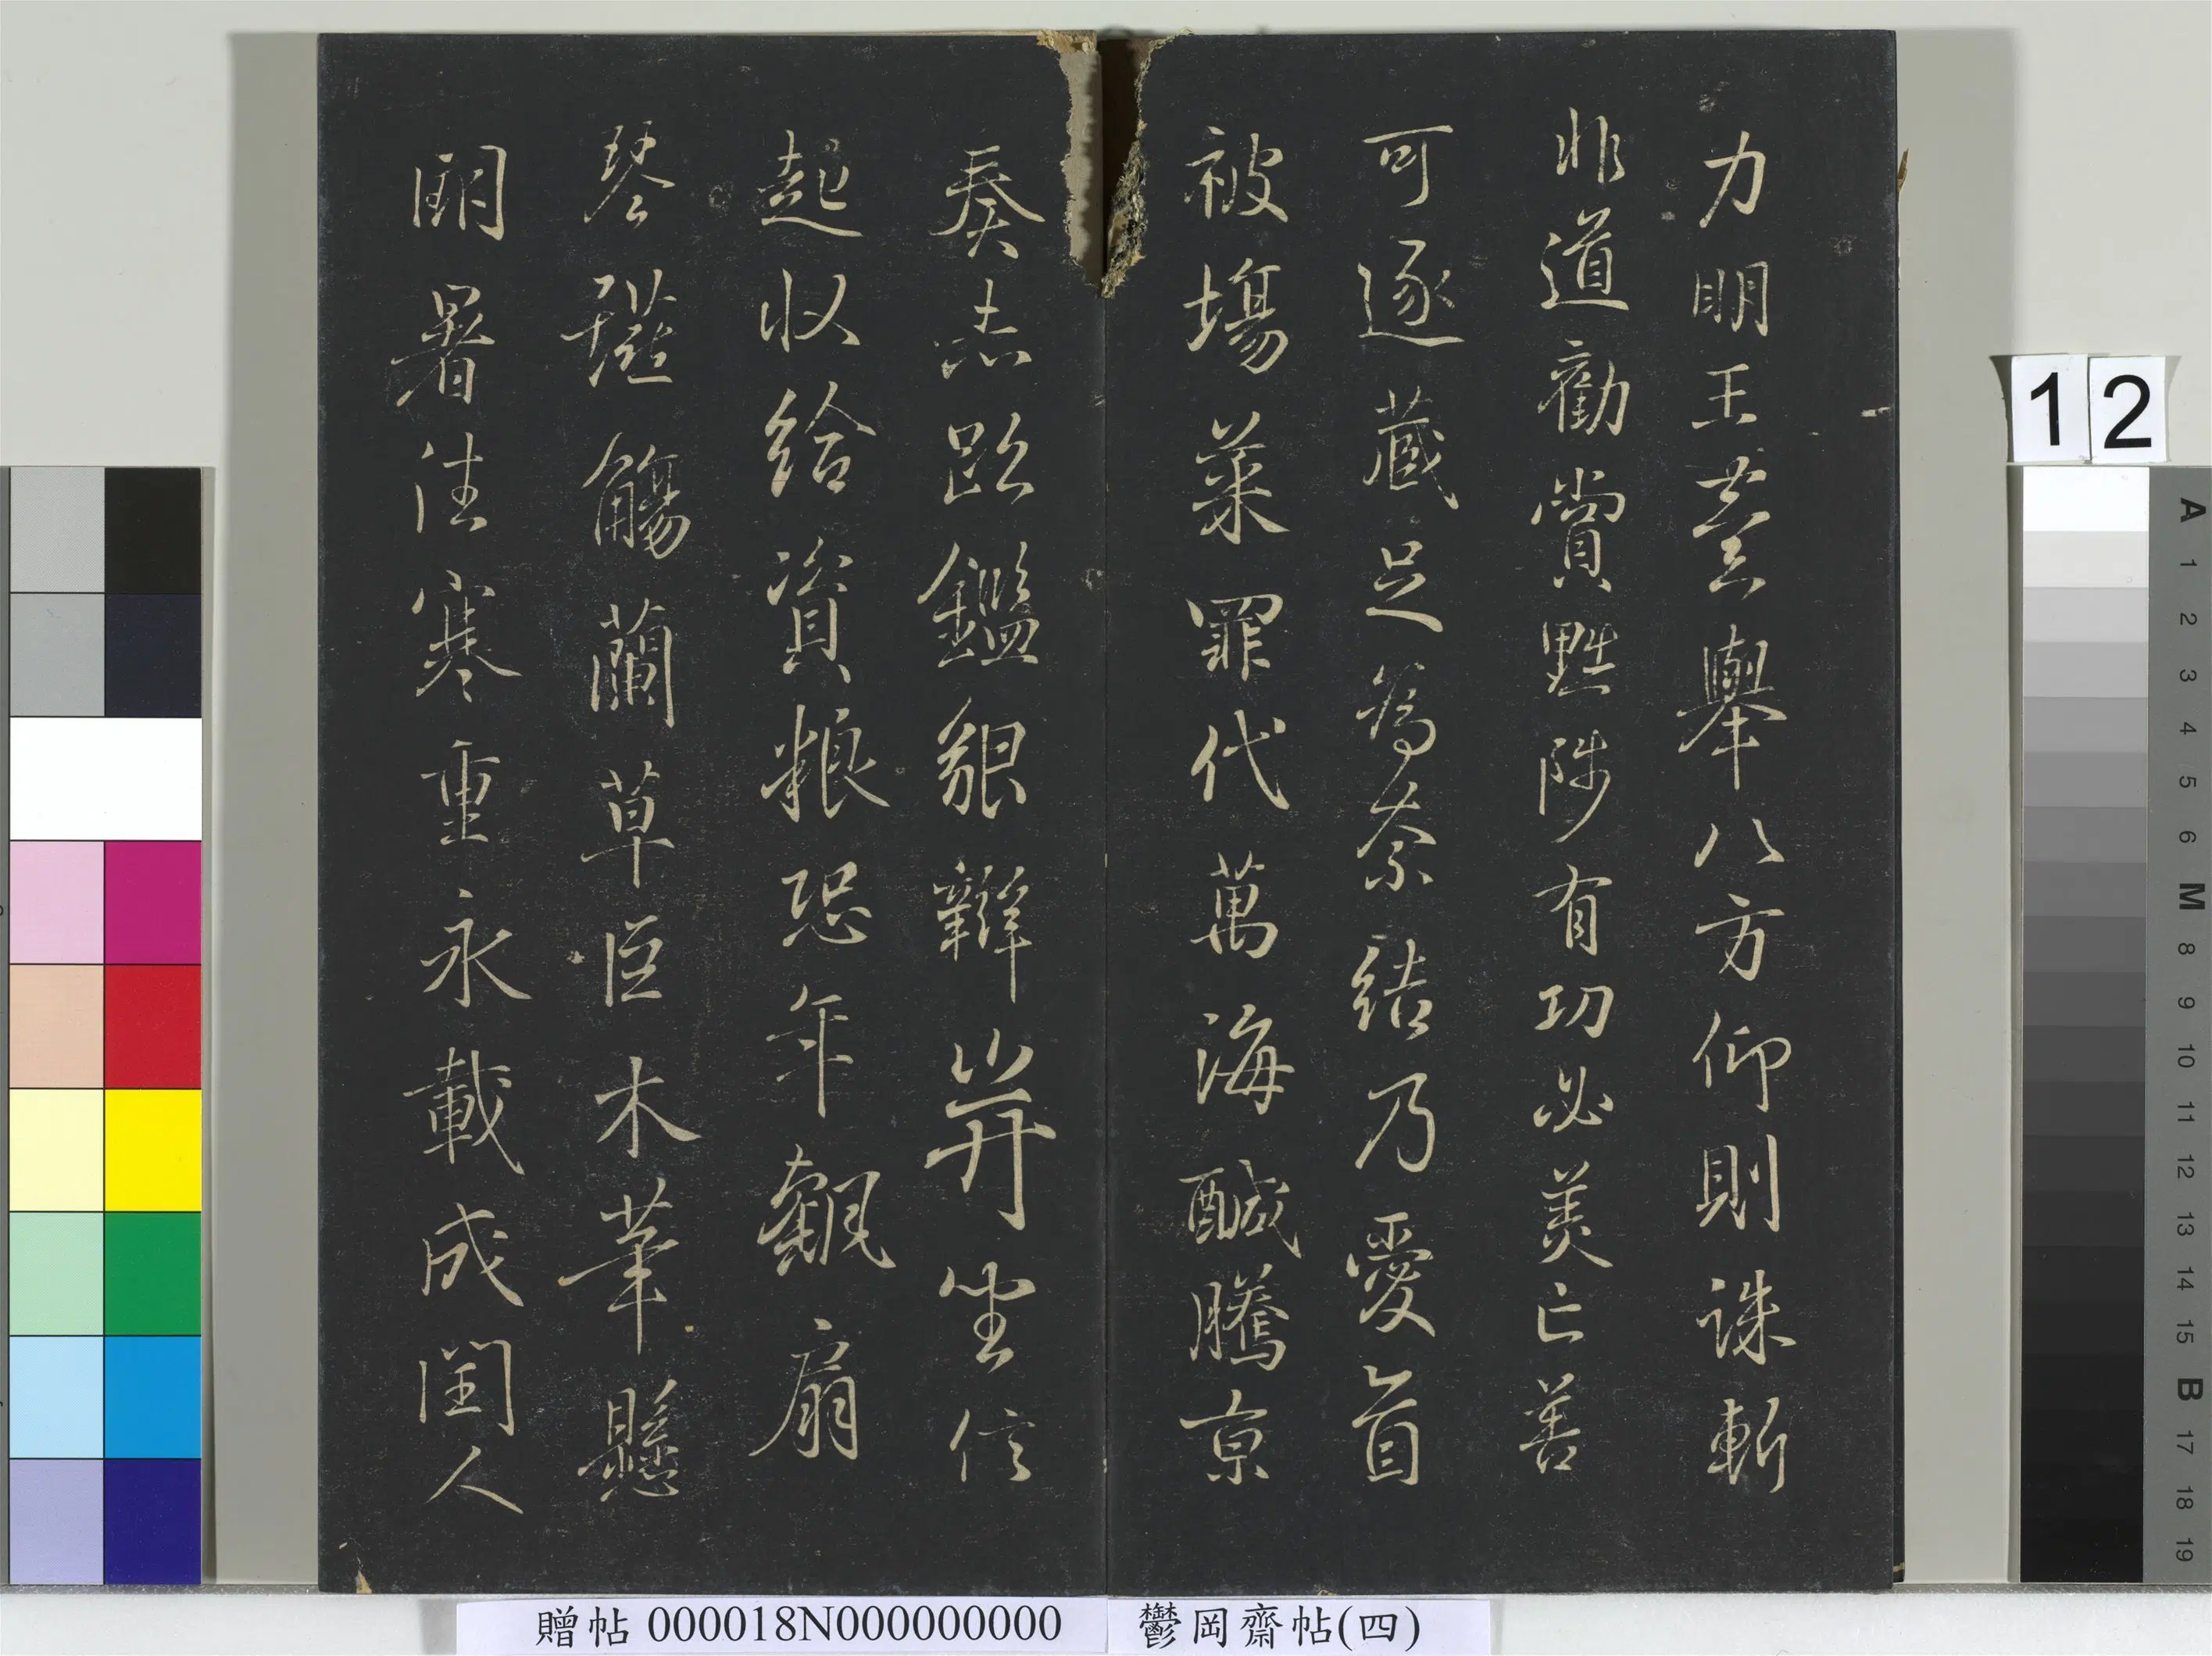 力明王藝舉八方仰則誅斬
非道勸賞黜陟有功必美亡善
可逐藏足為奈結乃愛首
被場菜罪代萬海鹹騰京
奏志鑑貌辯坐信
起收給資粮恐年扇
琴觴蘭草臣木華懸
朙暑往寒重永載成閏人
12
A 1 2 3 4 5 6 M 8 9 10 11 12 13 14 15 B 17 18 19
贈帖 000018N000000000
鬱岡齋帖(四)